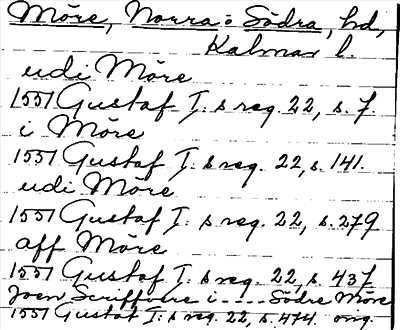 Möre, Norra o Södra, hd,
Kalmar l.
udi Möre
1551 Gustaf I:s reg. 22, s. 7.
i Möre
1551 Gustaf I:s reg. 22, s. 141.
udi Möre
1551 Gustaf I:s reg. 22, s. 279
aff Möre
1551 Gustaf I:s reg. 22, s. 437
Joen Scriffvere i .... Södre Möre
1551 Gustaf I:s reg. 22, s. 474. orig.